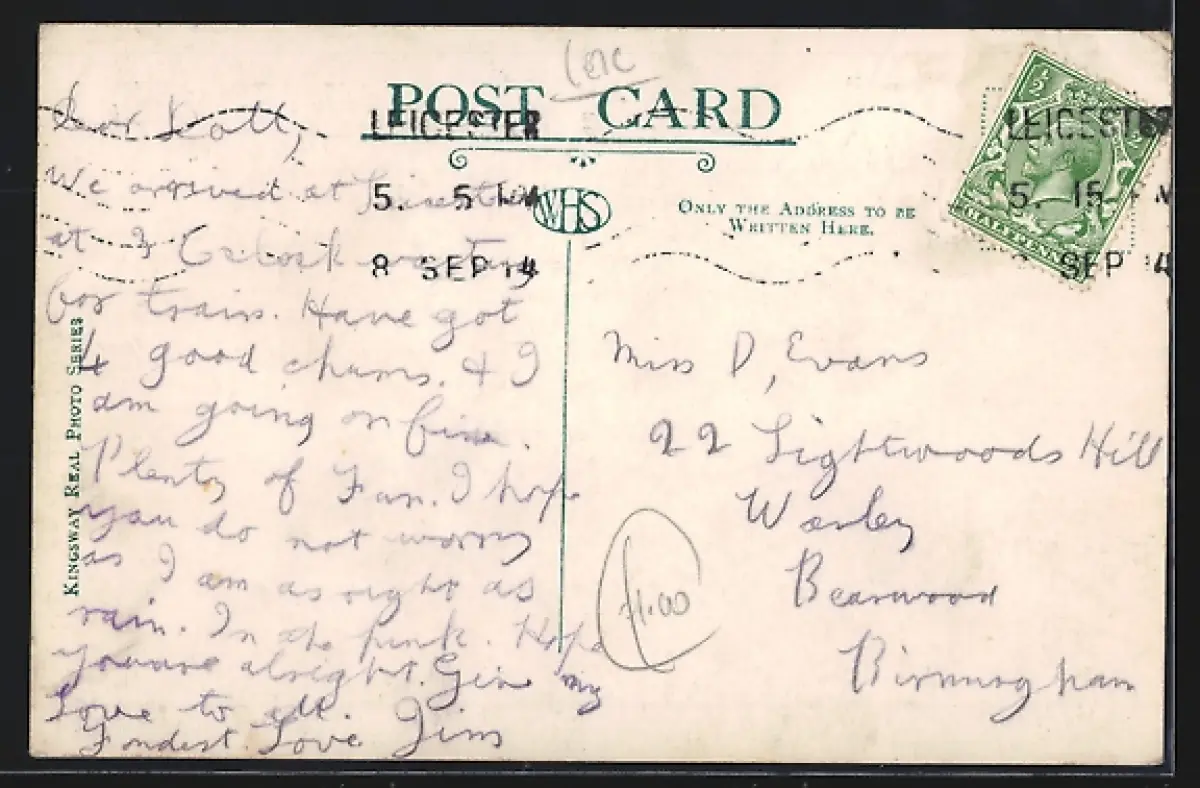 LEIC
POST CARD
LEICESTER
5. 15 M
8 SEP 14
LEICESTER
5. 15 M
SEP 14
WHS
ONLY THE ADDRESS TO BE
WRITTEN HERE.
KINGSWAY REAL PHOTO SERIES
Dear
We arrived at Leicester
at 3 waiting
for train. Have got
4 good chums. & I
am going on fine.
Plenty of Fun. I hope
you do not worry
as I am as right as
rain. In the pink. Hope
you are alright. Give my
Love to all.
Fondest Love Jim
Miss D, Evans
22 Lightwoods Hill
Warley
Bearwood
Birmingham
£1.00